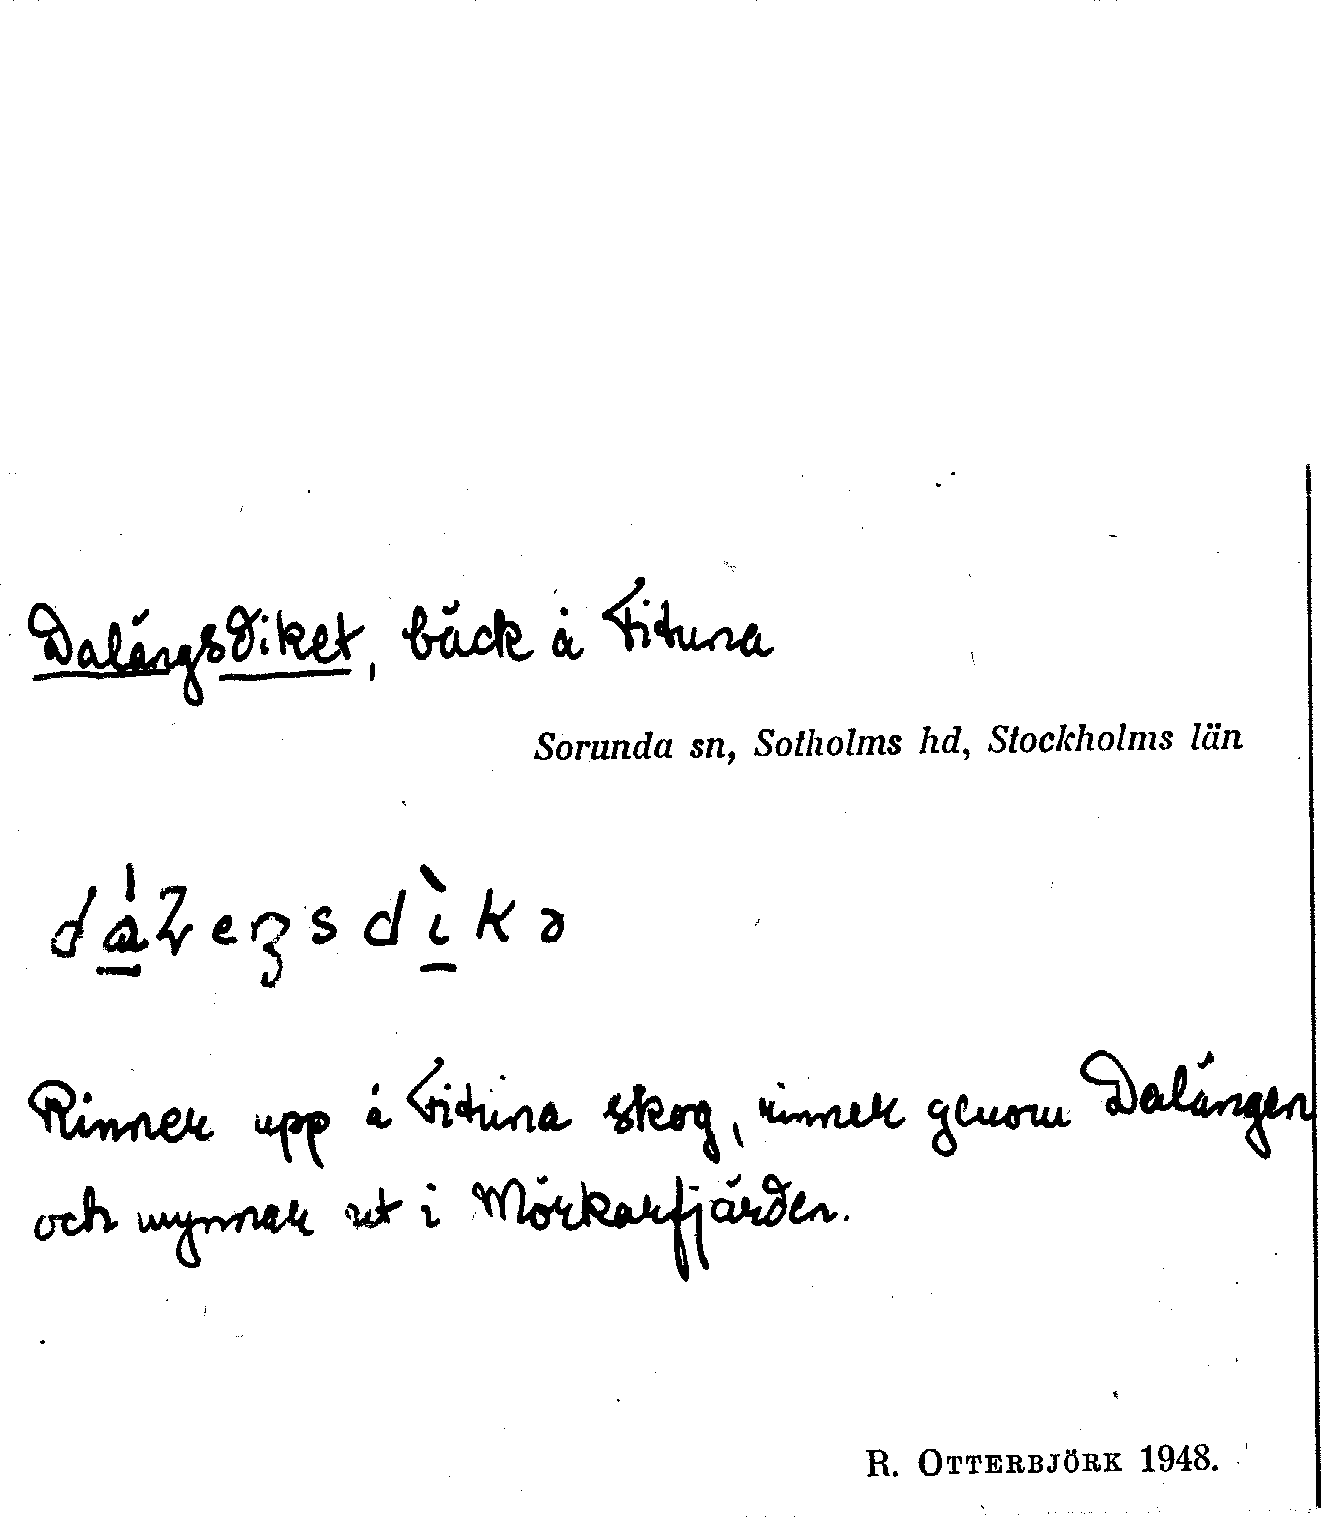 Dalängsdiket, bäck å Fituna
Sorunda sn, Sotholms hd, Stockholms län
Rinner upp å Fituna skog, rinner genom Dalängen
och mynnar ut i Mörkarfjärden.
R. OTTERBJÖRK 1948.